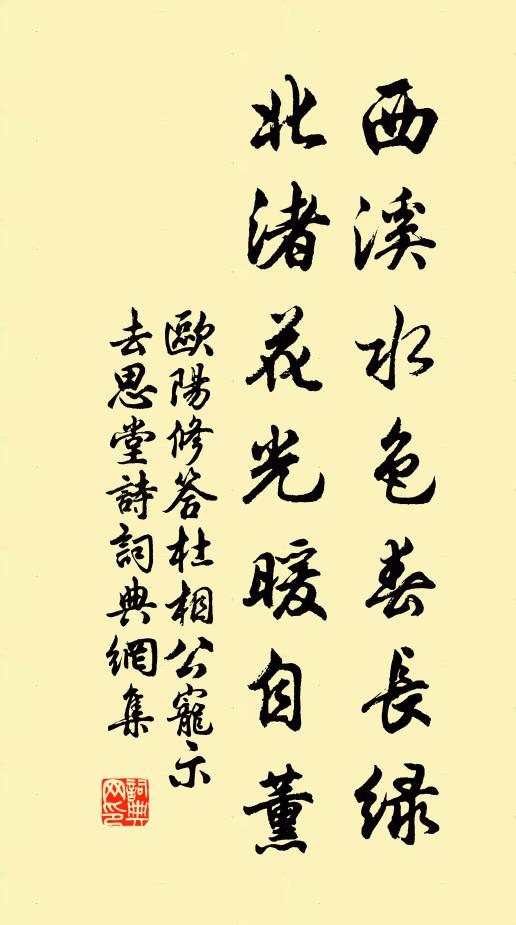 西溪水色春長綠
北渚花光暖自薰
歐陽修答杜相公寵示
去思堂詩詞典網集
詞典網印